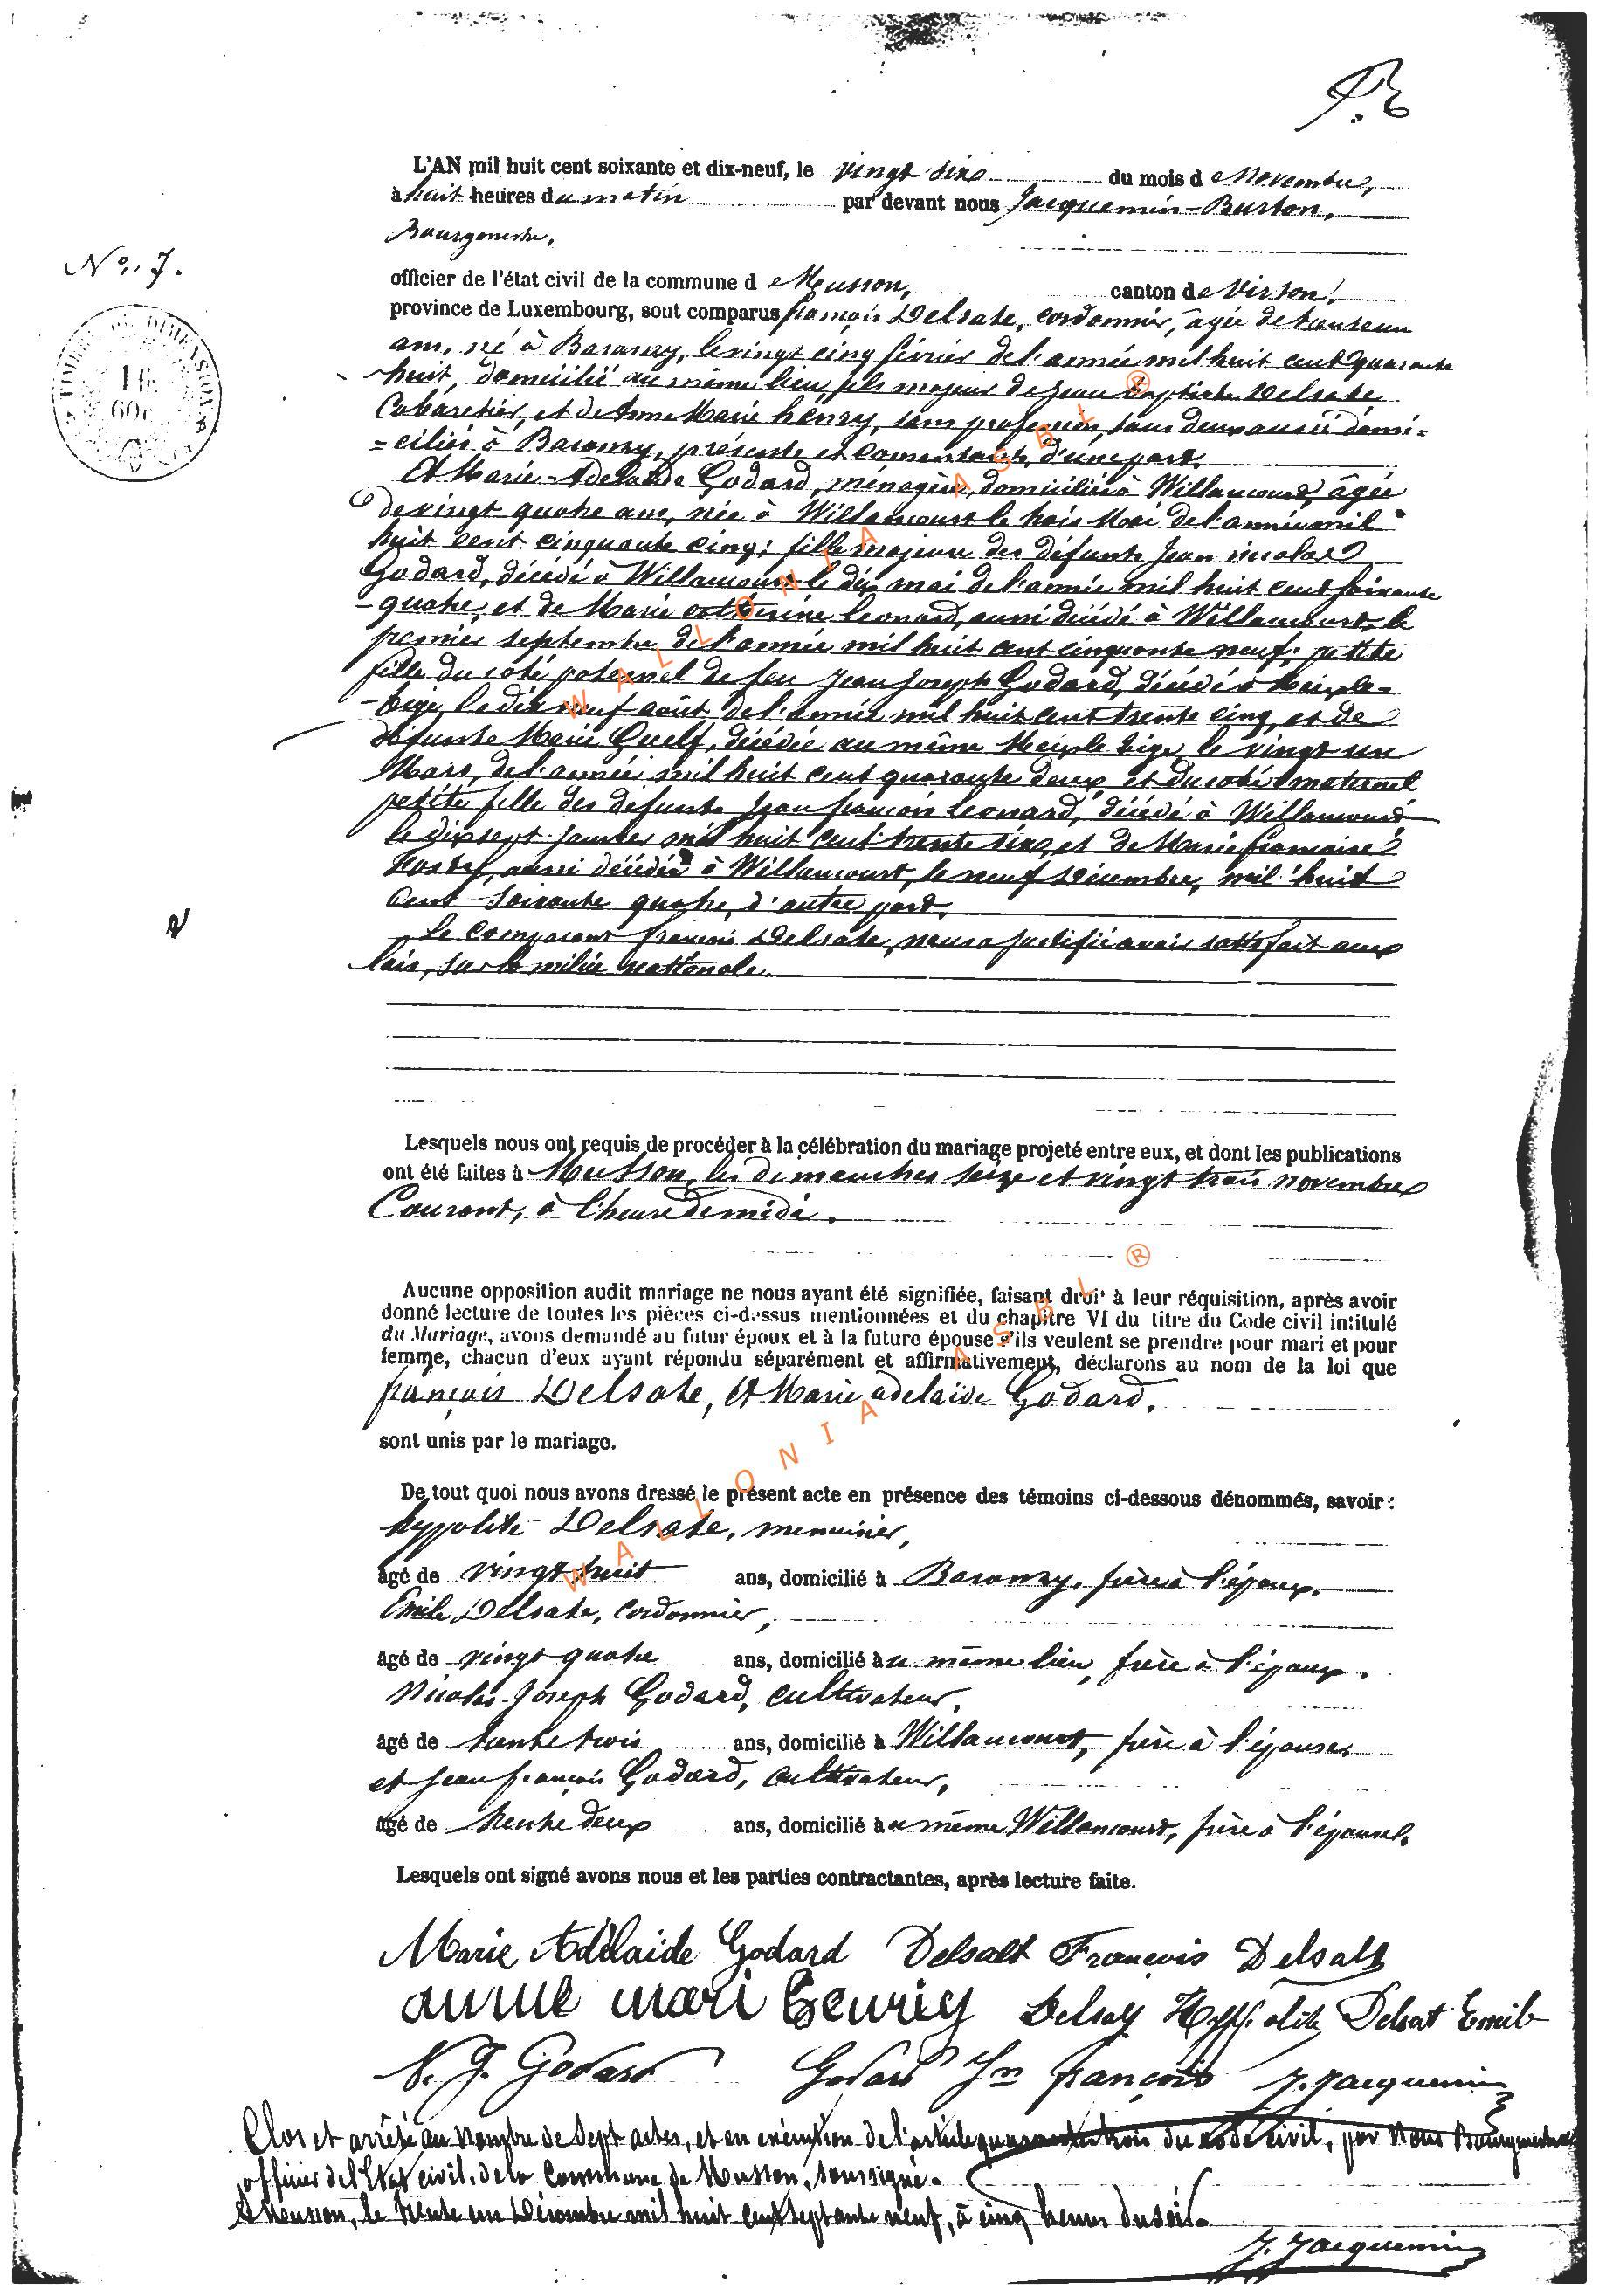 L'AN mil huit cent soixante et dix-neuf, le vingt six du mois de Novembre,
à huit heures du matin par devant nous Jacquemin-Burton,
Bourgmestre,
No. 7.
officier de l'état civil de la commune de Musson, canton de Virton,
province de Luxembourg, sont comparus françois Delsate, cordonnier, âgée de trente un
ans, né à Baranzy, le vingt cinq février de l'année mil huit cent quarante
huit, domicilié au même lieu, fils majeur de Jean Baptiste Delsate
Cabaretier, et de Anne Marie henry, sans profession, tous deux aussi domi=
=ciliés à Baranzy, présents et consentants, d'une part.
Et Marie-Adelaïde Godard, ménagère, domiciliée à Willancourt, âgée
de vingt quatre ans, née à Willancourt le trois Mai de l'année mil
huit cent cinquante cinq; fille majeure des défunts Jean nicolas
Godard, décédé à Willancourt le dix mai de l'année mil huit cent soixante
-quatre, et de Marie catherine Leonard, aussi décédé à Willancourt, le
premier septembre de l'année mil huit cent cinquante neuf; petite
fille du coté paternel de feu Jean Joseph Godard, décédé à Meix-le-
-tige, le dix neuf août de l'année mil huit cent trente cinq, et de
défunte Marie Quelf, décédée au même Meix-le tige, le vingt un
Mars, de l'année mil huit cent quarante deux, et du coté maternel
petite fille des défunts Jean françois Leonard, décédé à Willancourt
le dix sept janvier mil huit cent trente six, et de Marie françoise
aussi décédée à Willancourt, le neuf Décembre, mil huit
cent soixante quatre, d'autre part.
Le comparant françois Delsate, nous a justifié avoir satisfait aux
lois, sur la milice nationale.
Lesquels nous ont requis de procéder à la célébration du mariage projeté entre eux, et dont les publications
ont été faites à Musson, les dimanches seize et vingt trois novembre
Courant, à l'heure de midi.
Aucune opposition audit mariage ne nous ayant été signifiée, faisant droit à leur réquisition, après avoir
donné lecture de toutes les pièces ci-dessus mentionnées et du chapitre VI du titre du Code civil intitulé
du Mariage, avons demandé au futur époux et à la future épouse s'ils veulent se prendre pour mari et pour
femme, chacun d'eux ayant répondu séparément et affirmativement, déclarons au nom de la loi que
françois Delsate, et Marie adelaïde Godard.
sont unis par le mariage.
De tout quoi nous avons dressé le présent acte en présence des témoins ci-dessous dénommés, savoir :
hyppolite Delsate, menuisier,
âgé de vingt huit ans, domicilié à Baranzy, frère à l'époux.
Emile Delsate, cordonnier,
âgé de vingt quatre ans, domicilié au même lieu, frère à l'époux.
Nicolas-Joseph Godard, cultivateur,
âgé de trente trois ans, domicilié à Willancourt, frère à l'épouse,
et Jean françois Godard, cultivateur,
âgé de trente deux ans, domicilié au même Willancourt, frère à l'épouse.
Lesquels ont signé avons nous et les parties contractantes, après lecture faite.
Marie Adélaide Godard Delsalt François Delsalt
anne mari henriy Delsay Hyppolite Delsat Emile
N. J. Godard Godard Jn françois J. Jacquemin
Clos et arrêté au nombre de sept actes, et en exécution de l'article quarante trois du code civil, par nous Bourgmestre
officier de l'Etat civil de la commune de Musson, soussigné.
A Musson, le trente un Décembre mil huit cent septante neuf, à cinq heures du soir.
J. Jacquemin
TIMBRE DE DIMENSION
1 fr
60c
WALLONIA ASBL ®
WALLONIA ASBL ®